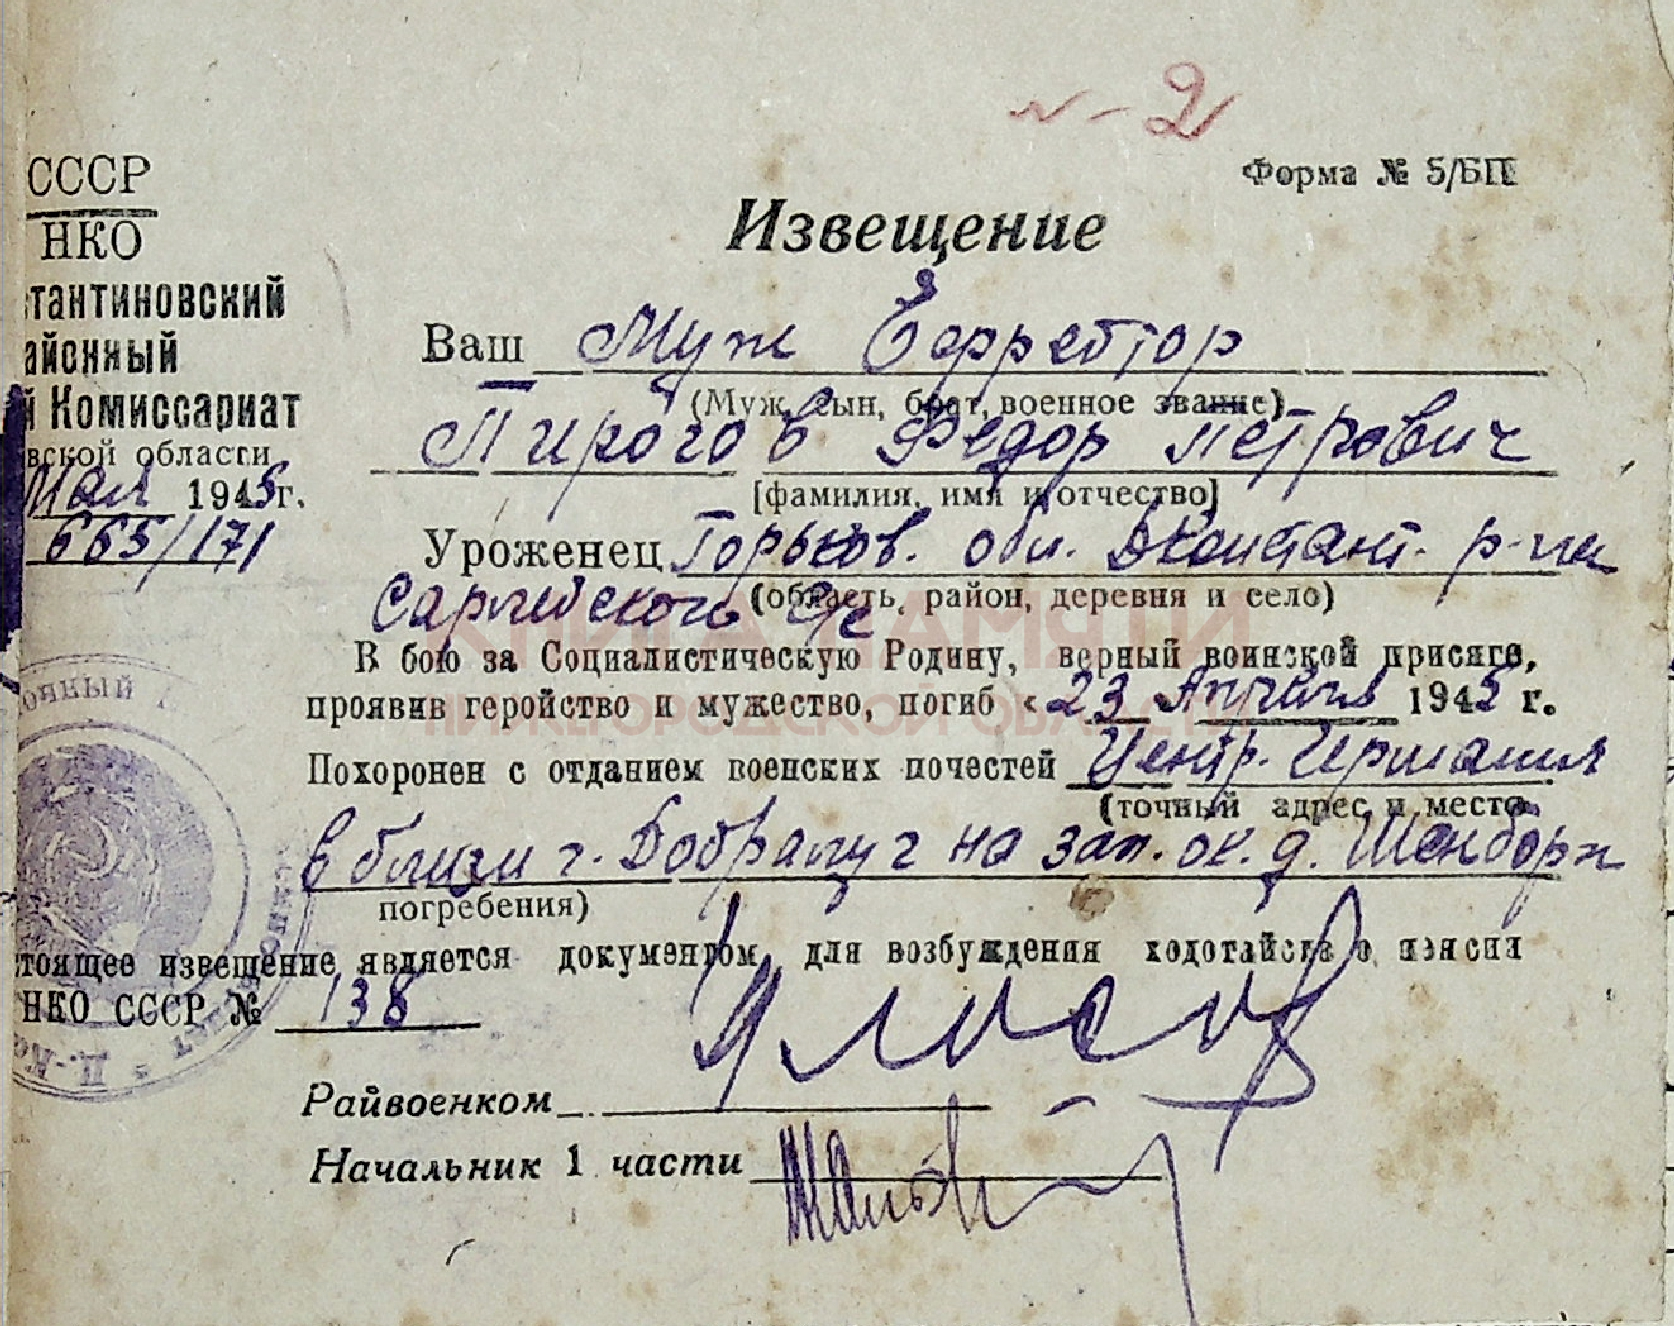 л-2
Форма № 5/БП
СССР
НКО
тантиновский
айонный
й Комиссариат
вской области
Мая 1945г.
665/171
Извещение
Ваш Муж Ефрейтор
(Муж, сын, брат, военное звание)
Пирогов Федор Петрович
[фамилия, имя и отчество]
Уроженец Горьков. обл. Дконстант. р-на
(область, район, деревня и село)
Сарлейского с/с
КНИГА ПАМЯТИ
НИЖЕГОРОДСКОЙ ОБЛАСТИ
В бою за Социалистическую Родину, верный воинской присяге,
проявив геройство и мужество, погиб «23 Апреля 1945 г.
Похоронен с отданием военских почестей Центр. Германия
(точный адрес и место
вблизи г. Бобрацуг на зап. ок. д. Шенборн
погребения)
тоящее извещение является документом для возбуждения ходотайства о пенсии
НКО СССР № 138
Райвоенком
Начальник 1 части